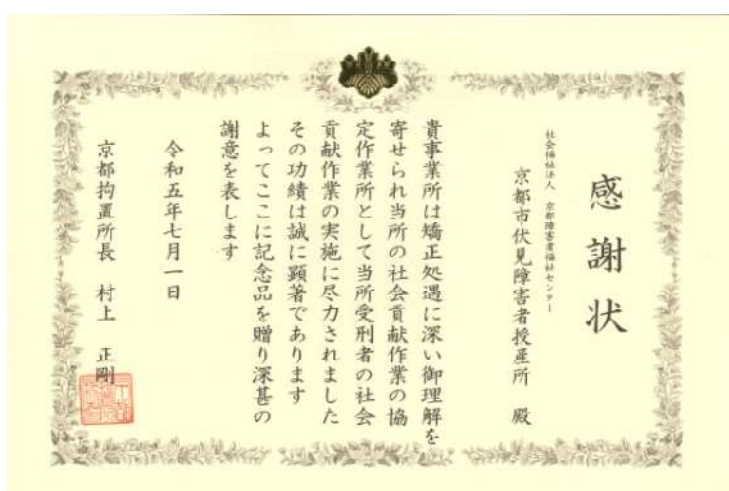 感謝状
社会福祉法人 京都障害者福祉センター
京都市伏見障害者授産所 殿
貴事業所は矯正処遇に深い御理解を
寄せられ当所の社会貢献作業の協
定作業所として当所受刑者の社会
貢献作業の実施に尽力されました
その功績は誠に顕著であります
よってここに記念品を贈り深甚の
謝意を表します
令和五年七月一日
京都拘置所長 村上 正剛